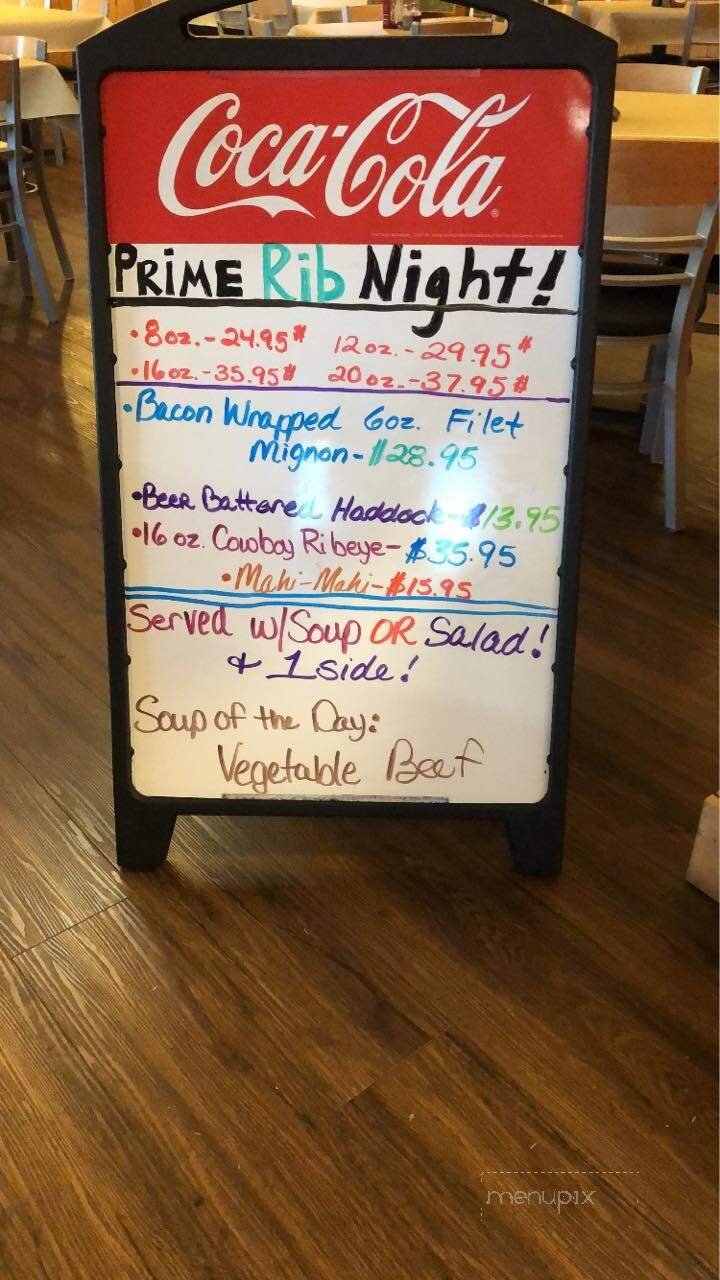 Coca-Cola
PRiME Rib Night!
•8oz.-24.95$ 12oz.-29.95$
•16oz.-35.95$ 20oz.-37.95$
•Bacon Wrapped 6oz. Filet
Mignon-$28.95
•Beer Battered Haddock-$13.95
•16 oz. Cowboy Ribeye-$35.95
•Mahi-Mahi-$15.95
Served w/Soup OR Salad!
& 1 side!
Soup of the Day:
Vegetable Beef
menupix